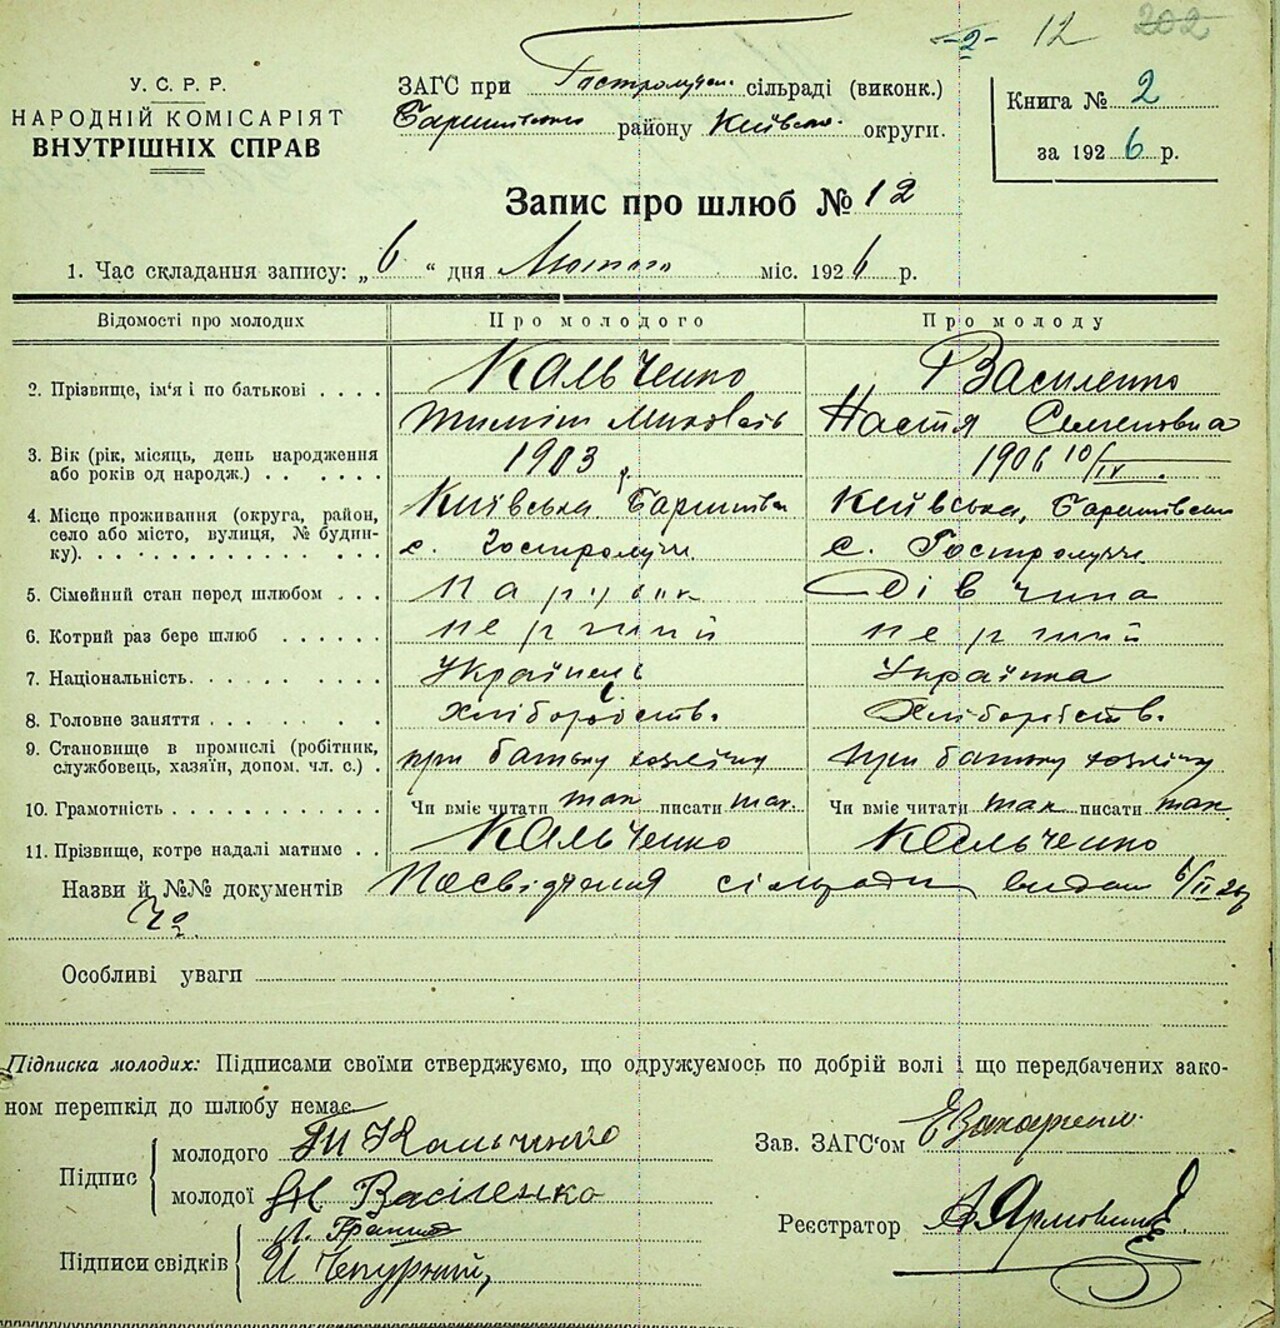 -2- 12 202
У. С. Р. Р.
НАРОДНІЙ КОМІСАРІЯТ
ВНУТРІШНІХ СПРАВ
ЗАГС при Гостролучч. сільраді (виконк.)
Баришівськ. району Київськ. округи.
Книга № 2
за 1926 р.
Запис про шлюб № 12
1. Час складання запису: „6“ дня Лютого міс. 1926 р.
Відомості про молодих Про молодого Про молоду
2. Прізвище, ім'я і по батькові . . . . Кальченко Василенко
Тиміш Миколаїв Настя Семеновна
3. Вік (рік, місяць, день народження або років од народж.) . . . . . . 1903 р. 1906 10/IX.
4. Місце проживання (округа, район, село або місто, вулиця, № будинку). Київська Баришівськ Київська, Баришівськ
с. Гостролуччя с. Гостролуччя
5. Сімейний стан перед шлюбом . . . парубок Дівчина
6. Котрий раз бере шлюб . . . . . . перший перший
7. Національність. Українець Українка
8. Головне заняття Хліборобств. Хліборобств.
9. Становище в промислі (робітник, службовець, хазяїн, допом. чл. с.) . при батьку хозяїну при батьку хозяїну
10. Грамотність Чи вміє читати так писати так. Чи вміє читати так писати так
11. Прізвище, котре надалі матиме . . Кальченко Кальченко
Назви й №№ документів Посвідчення сільради видан 6/II 26р
Особливі уваги
Підписка молодих: Підписами своїми стверджуємо, що одружуємось по добрій волі і що передбачених зако-
ном перешкід до шлюбу немає.
Підпис
молодого Ти Кальченко
молодої Н. Василенко
Підписи свідків
И Чепурний,
Зав. ЗАГС'ом
Реєстратор